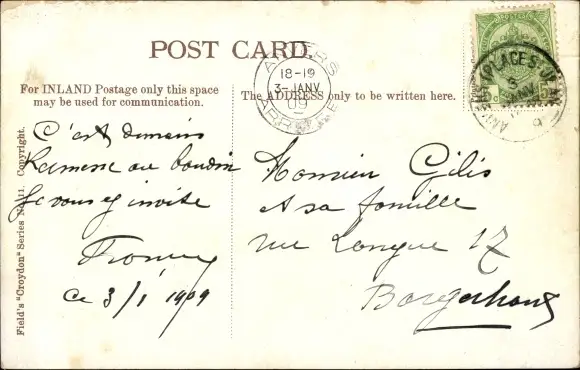 POST CARD.
For INLAND Postage only this space
may be used for communication.
The ADDRESS only to be written here.
ANVERS
18-19
3-JANV
09
ARRIVÉE
C'est demain
Kermesse au boudin
Je vous y invite
Ce 3/1 1909
Monsieur Gilis
et sa famille
rue Longue 17
Borgerhout
Field's "Croydon" Series No. 11. Copyright.